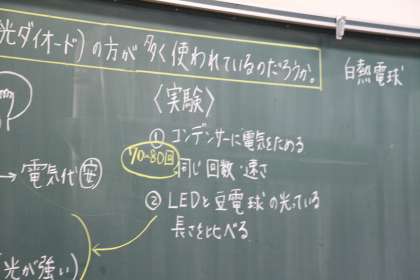 光ダイオード)の方が多く使われているのだろうか。
白熱電球
〈実験〉
① コンデンサーに電気をためる
70-80回
同じ回数・速さ
→ 電気代 安
② LEDと豆電球の光っている
長さを比べる
(光が強い)